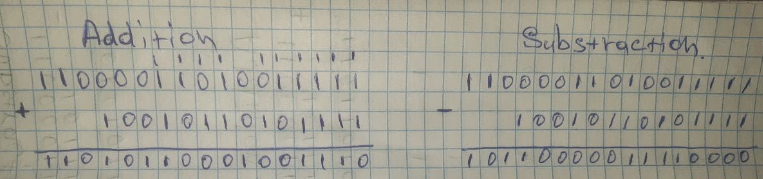 Addition
1 1 1 1 1 1 1 1 1 1
11000011010011111
+
10010110101111
11010110001001110
Substraction.
11000011010011111
-
10010110101111
10110000011110000